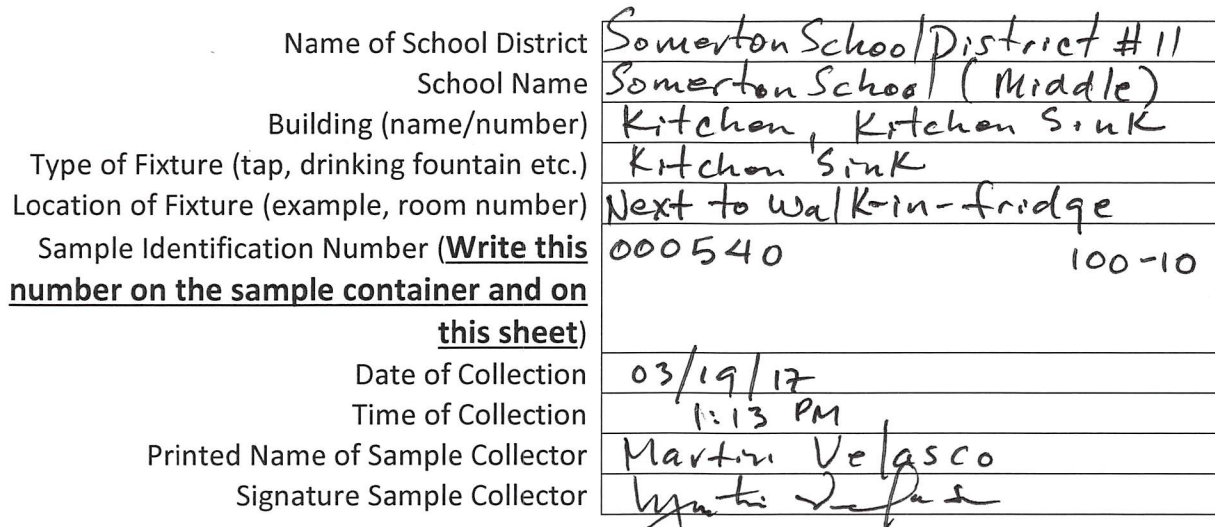 Name of School District Somerton School District #11
School Name Somerton School (Middle)
Building (name/number) Kitchen, Kitchen Sink
Type of Fixture (tap, drinking fountain etc.) Kitchen Sink
Location of Fixture (example, room number) Next to Walk-in-fridge
Sample Identification Number (Write this 000540 100-10
number on the sample container and on
this sheet)
Date of Collection 03/19/17
Time of Collection 1:13 PM
Printed Name of Sample Collector Martin Velasco
Signature Sample Collector